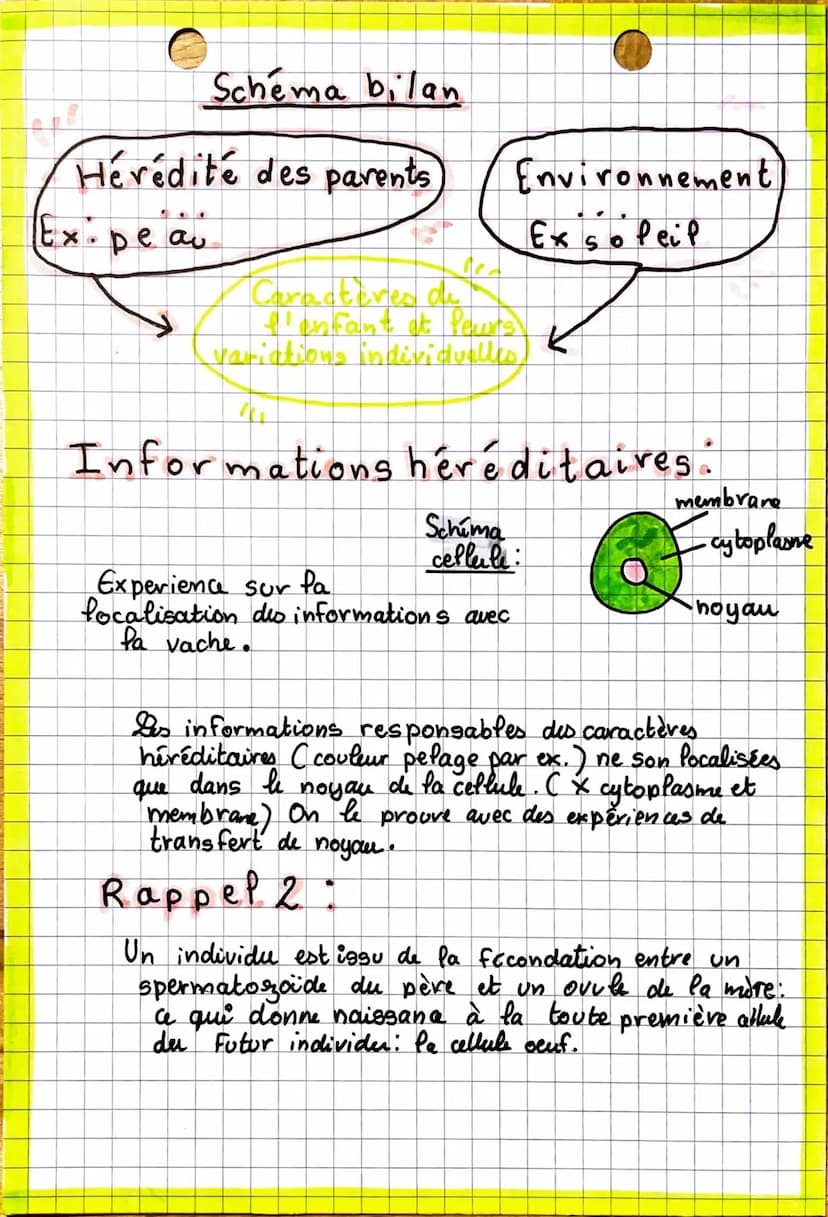 Schéma bilan
Hérédité des parents
Ex: peau
Environnement
Ex: soleil
Caractères de
l'enfant et leurs
variations individuelles
Informations héréditaires:
Schéma
cellule:
membrane
cytoplasme
noyau
Experience sur la
localisation des informations avec
la vache.
Les informations responsables des caractères
héréditaires (couleur pelage par ex.) ne son localisées
que dans le noyau de la cellule. (X cytoplasme et
membrane) On le prouve avec des expériences de
transfert de noyau.
Rappel 2:
Un individu est issu de la fécondation entre un
spermatozoïde du père et un ovule de la mère:
ce qui donne naissance à la toute première cellule
du futur individu: la cellule oeuf.